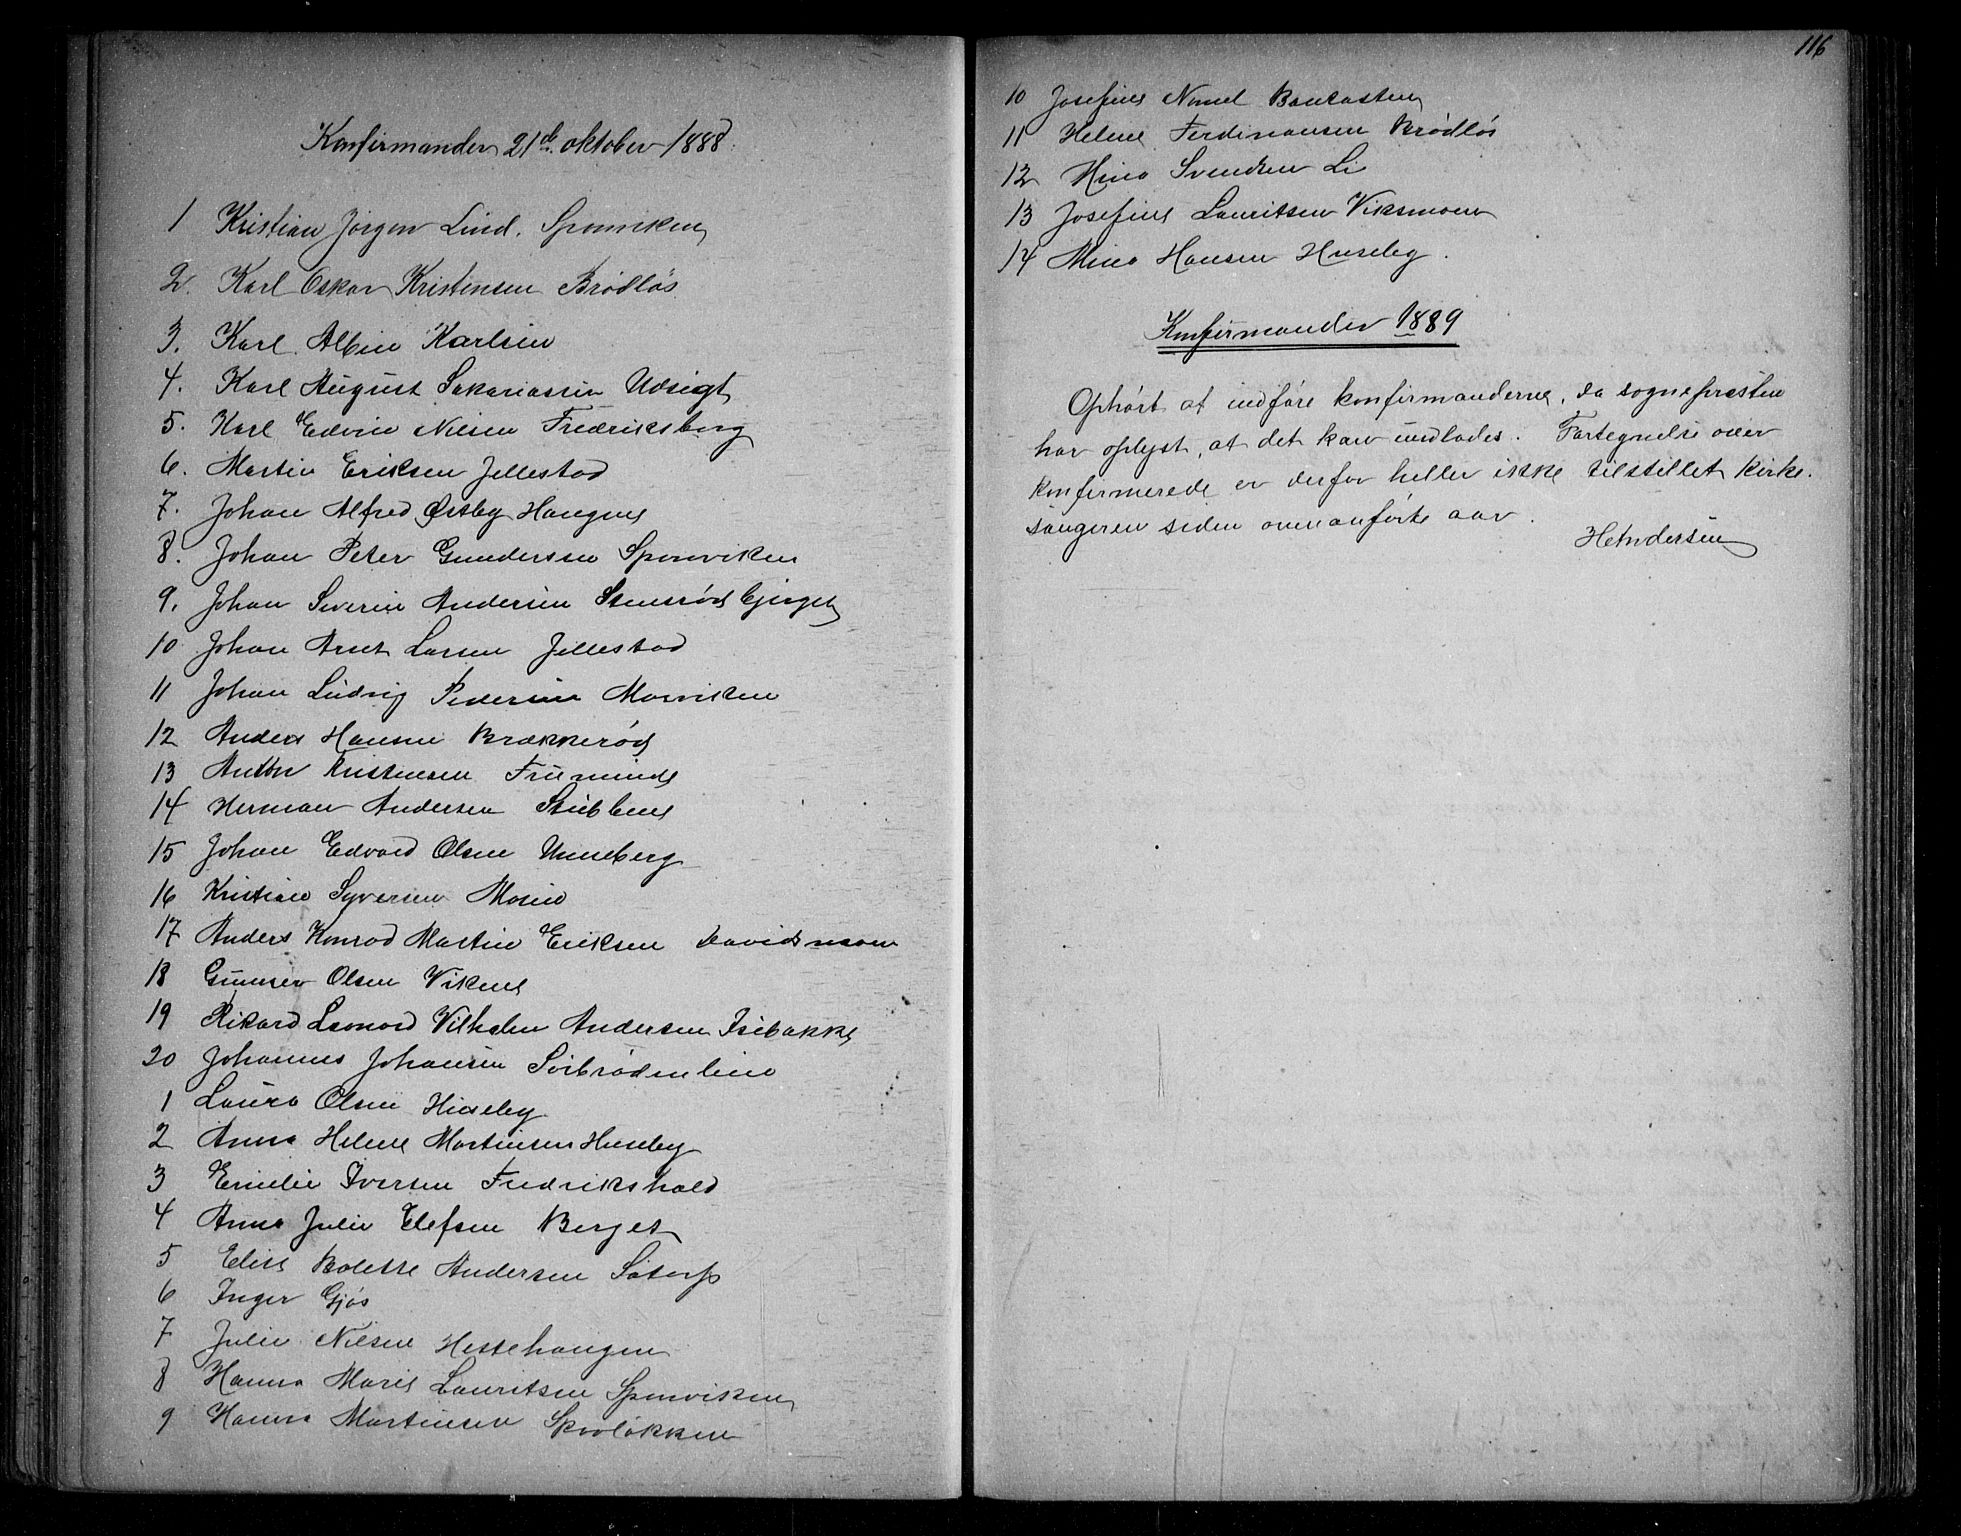 Konfirmander 21de oktober 1888.
1 Kristian Jørgen Lind. Sponviken
2. Karl Oskar Kristensen Brødløs
3. Karl Albin Karlsen
4. Karl August Sakariassen Udsigt
5. Karl Edvin Nilsen Fredriksberg
6. Martin Eriksen Jellestad
7. Johan Alfred Østby Haugene
8. Johan Peter Gundersen Sponviken
9. Johan Severin Andersen Stensrød
10 Johan Arnt Larsen Jellestad
11 Johan Ludvig Pedersen Morviken
12 Anders Hansen Brækkerød
13 Anton Kristensen Fruminde
14 Herman Andersen Stubbene
15 Johan Edvard Olsen Unneberg
16 Kristian Syversen Moen
17 Anders Konrad Martin Eriksen Davidsmoen
18 Gunner Olsen Vikene
19 Rikard Leonard Vilhelm Andersen Isebakke
20 Johannes Johansen Sørbrødenlein
1 Laura Olsen Huseby
2 Anna Helene Martinsen Huseby
3 Emelie Iversen Fredrikshald
4 Anna Julie Elefsen Berget
5 Elise Bolette Andersen Satorp
6 Inger Gjøs
7 Julie Nilsen Hestehaugen
8 Hanna Marie Lauritsen Sponviken
9 Hanna Martinsen Skovløkken
116
10 Josefine Nomel Bankasten
11 Helene Ferdinansen Brødløs
12 Mina Svendsen Li
13 Josefine Lauritsen Viksmoen
14 Mina Hansen Huseby.
Konfirmander 1889
Ophørt at indføre konfirmanderne, da sognepresten
har oplyst, at det kan undlades. Fortegnelse over
konfirmerede er derfor heller ikke tilstillet kirke-
sangeren siden ovenanførte aar.
H Andersen